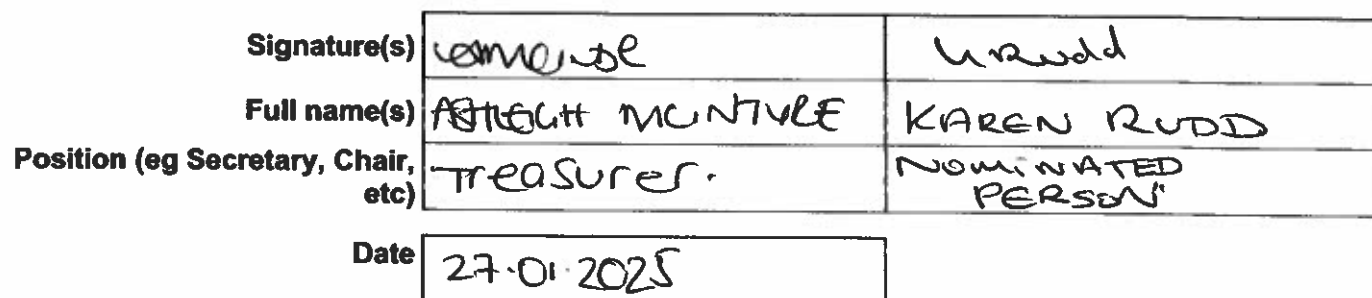 Signature(s) KRudd
Full name(s) ASHLEIGH MCINTYRE KAREN RUDD
Position (eg Secretary, Chair, etc) Treasurer. NOMINATED PERSON
Date 27.01.2025